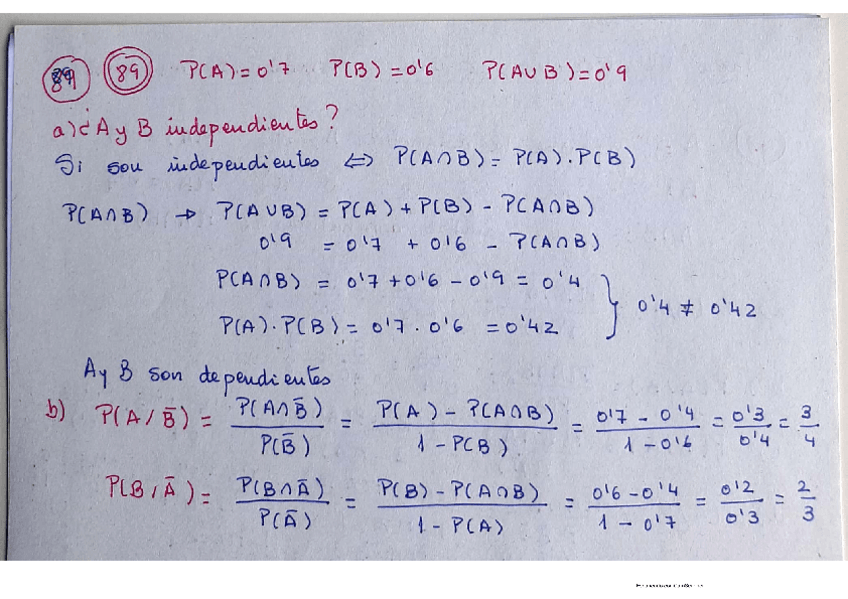 89 89 P(A)=0'7 P(B)=0'6 P(A∪B)=0'9
a) ¿A y B independientes?
Si son independientes ⇔ P(A∩B)= P(A).P(B)
P(A∩B) → P(A∪B) = P(A)+P(B) - P(A∩B)
0'9 = 0'7 + 0'6 - P(A∩B)
P(A∩B) = 0'7+0'6-0'9 = 0'4
P(A).P(B)= 0'7 . 0'6 = 0'42 } 0'4 ≠ 0'42
A y B son dependientes
b) P(A/B̄) = P(A∩B̄)/P(B̄) = (P(A)-P(A∩B))/(1-P(B)) = (0'7-0'4)/(1-0'6) = 0'3/0'4 = 3/4
P(B/Ā) = P(B∩Ā)/P(Ā) = (P(B)-P(A∩B))/(1-P(A)) = (0'6-0'4)/(1-0'7) = 0'2/0'3 = 2/3